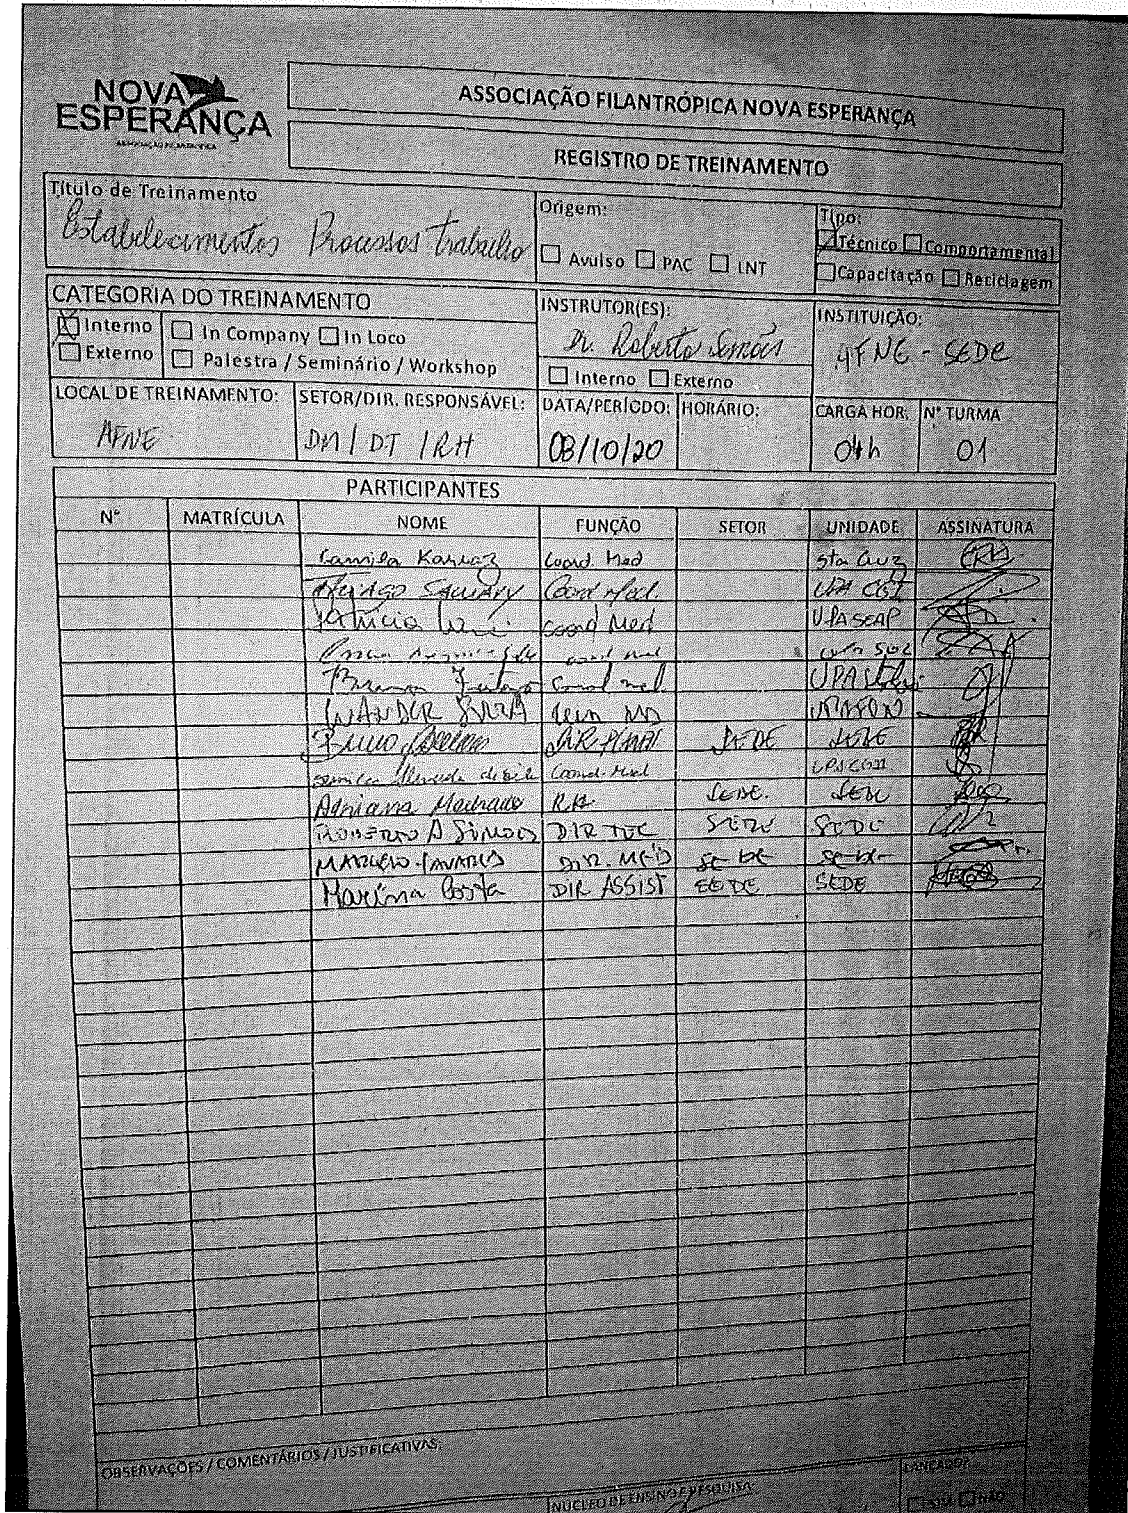 NOVA
ESPERANÇA
ASSOCIAÇÃO FILANTRÓPICA
ASSOCIAÇÃO FILANTRÓPICA NOVA ESPERANÇA
REGISTRO DE TREINAMENTO
Título de Treinamento
Estabelecimentos Processos trabalho
Origem:
Avulso PAC LNT
Tipo:
Técnico Comportamental
Capacitação Reciclagem
CATEGORIA DO TREINAMENTO
Interno In Company In Loco
Externo Palestra / Seminário / Workshop
INSTRUTOR(ES):
Dr. Roberto Simões
Interno Externo
INSTITUIÇÃO:
AFNE - SEDE
LOCAL DE TREINAMENTO:
AFNE
SETOR/DIR. RESPONSÁVEL:
DM / DT / RH
DATA/PERÍODO:
08/10/20
HORÁRIO:
CARGA HOR.
04h
Nº TURMA
01
PARTICIPANTES
Nº MATRÍCULA NOME FUNÇÃO SETOR UNIDADE ASSINATURA
Camila Coord Med Sta Cruz
Thiago Coord Med. UPA
Patricia Coord Med UPA SEAP
coord med
coord med UPA
WANDER
Bruno SEDE SEDE
Almeida Coord. Med
Adriana Machado RH SEDE. SEDE
ROBERTO A SIMOES DIR TEC SEDE SEDE
MARCELO TAVARES DIR. MED SEDE SEDE
Marina Costa DIR ASSIST SEDE SEDE
OBSERVAÇÕES / COMENTÁRIOS / JUSTIFICATIVAS:
NÚCLEO DE ENSINO E PESQUISA:
LANÇADO?
SIM NÃO